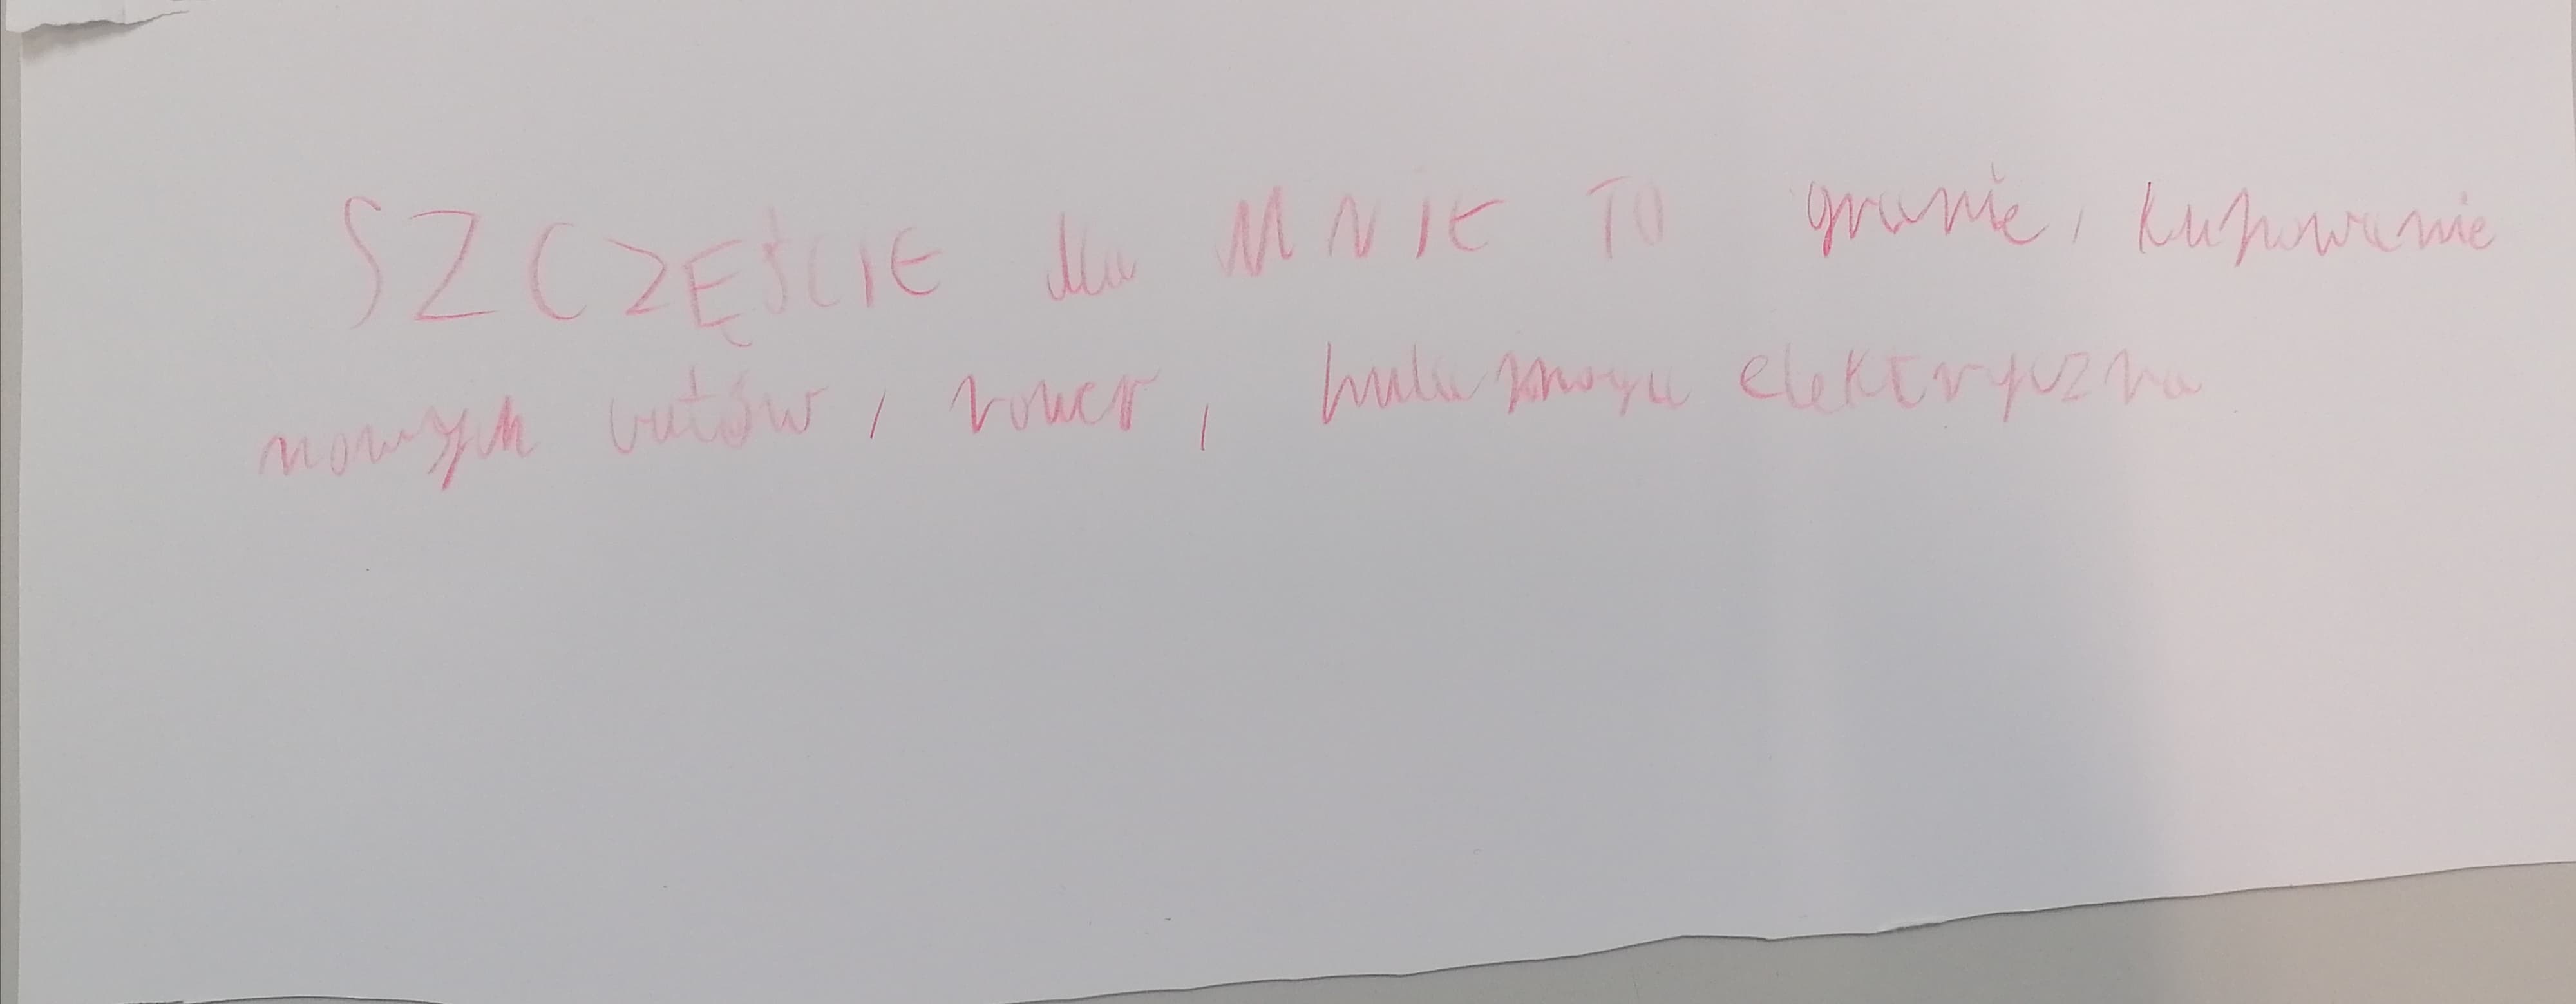 SZCZĘŚCIE dla MNIE TO granie, kupowanie
nowych butów, rower, hulajnoga elektryczna